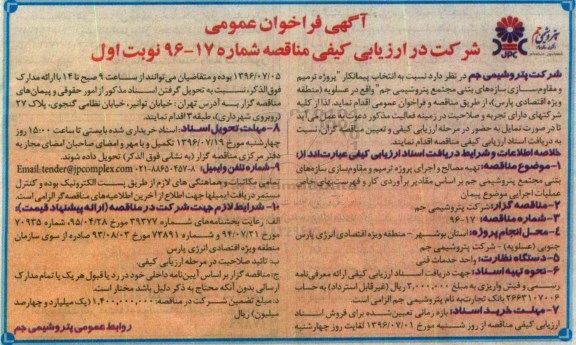 آگهی فراخوان عمومی
شرکت در ارزیابی کیفی مناقصه شماره ۱۷-۹۶ نوبت اول
پتروشیمی جم
JPC
شرکت پتروشیمی جم در نظر دارد نسبت به انتخاب پیمانکار "پروژه ترمیم
و مقاوم‌سازی سازه‌های بتنی مجتمع پتروشیمی جم" واقع در عسلویه (منطقه
ویژه اقتصادی پارس)، از طریق مناقصه و فراخوان عمومی اقدام نماید. لذا از کلیه
شرکتهای دارای تجربه و صلاحیت در زمینه فعالیت مذکور دعوت به عمل می‌آید
تا در صورت تمایل به حضور در مرحله ارزیابی کیفی و تعیین مناقصه گران، نسبت
به دریافت اسناد ارزیابی کیفی مناقصه اقدام نمایند.
خلاصه اطلاعات و شرایط دریافت اسناد ارزیابی کیفی عبارت‌اند از:
۱-موضوع مناقصه: تهیه مصالح و اجرای پروژه ترمیم و مقاوم‌سازی سازه‌های
بتنی مجتمع پتروشیمی جم بر اساس مقادیر برآوردی کار و فهرست‌بهای خاص
عملیات اجرایی موضوع پیمان
۲-مناقصه گزار: شرکت پتروشیمی جم
۳-شماره مناقصه: ۱۷-۹۶
۴-محل انجام پروژه: استان بوشهر - منطقه ویژه اقتصادی انرژی پارس
جنوبی (عسلویه) - شرکت پتروشیمی جم
۵-دستگاه نظارت: واحد خدمات فنی
۶-نحوه تهیه اسناد: جهت دریافت اسناد ارزیابی کیفی ارائه معرفی‌نامه
رسمی و فیش واریزی به مبلغ ۲,۰۰۰,۰۰۰ ریال (غیرقابل استرداد) به حساب
۲۶۶۳۱۰۷۰۰۶ بانک تجارت به نام پتروشیمی جم الزامی است.
۷-مهلت خرید اسناد: بازه زمانی تعیین‌شده برای فروش اسناد
ارزیابی کیفی مناقصه از روز شنبه مورخ ۱۳۹۶/۰۷/۰۱ لغایت روز چهارشنبه
۱۳۹۶/۰۷/۰۵ بوده و متقاضیان می‌توانند از ساعت ۹ صبح تا ۱۴ با ارائه مدارک
فوق‌الذکر، نسبت به تحویل گرفتن اسناد مذکور از امور حقوقی و پیمان‌های
مناقصه گزار به آدرس تهران: خیابان توانیر، خیابان نظامی گنجوی، پلاک ۲۷
(روبروی شهرداری)، طبقه ۳ اقدام نمایند.
۸-مهلت تحویل اسناد: اسناد خریداری شده بایستی تا ساعت ۱۵:۰۰ روز
چهارشنبه مورخ ۱۳۹۶/۰۷/۱۹ تکمیل و با مهر و امضای صاحبان امضای مجاز به
دفتر مرکزی مناقصه گزار (به نشانی فوق الذکر) تحویل داده شوند.
۹-شماره تلفن وایمیل: ۸-۰۲۱-۸۸۶۵۰۴۵۷ Email:tender@jpcomplex.com
تمامی مکاتبات و هماهنگی های لازم از طریق پست الکترونیک بوده و کنترل
مستمر دریافت ایمیلها جهت اطلاع از آخرین اطلاعیه‌های مناقصه‌گر الزامی است.
۱۰-شرایط لازم جهت شرکت در مناقصه (ارائه پیشنهاد قیمت):
الف: رعایت بخشنامه‌های شماره ۳۹۳۷۷ مورخ ۹۵/۰۴/۲۸، شماره ۷۰۹۳۵
مورخ ۹۴/۰۷/۲۱ و شماره ۷۳۸۹۱ مورخ ۹۳/۰۸/۰۳ صادره از سوی سازمان
منطقه ویژه اقتصادی انرژی پارس
ب: تائید صلاحیت در مرحله ارزیابی کیفی.
ج: مناقصه گزار بر اساس آیین‌نامه داخلی خود در رد یا قبول هر یک یا تمام مدارک
ارسالی بدون آنکه محتاج به ذکر دلیل باشد مختار است.
د: مبلغ تضمین شرکت در مناقصه: ۱,۴۰۰,۰۰۰,۰۰۰ (یک میلیارد و چهارصد
میلیون) ریال
روابط عمومی پتروشیمی جم